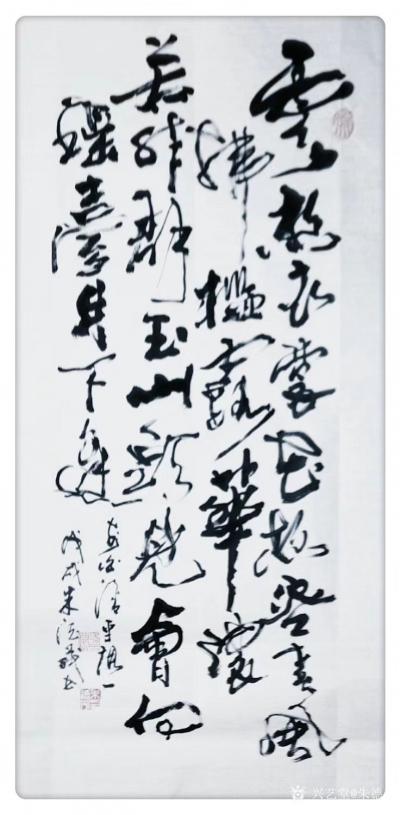 雲想衣裳花想容春風
拂檻露華濃
若非群玉山頭見會向
瑤臺月下逢
李白清平調一
戊戌朱德
兴艺堂@朱德